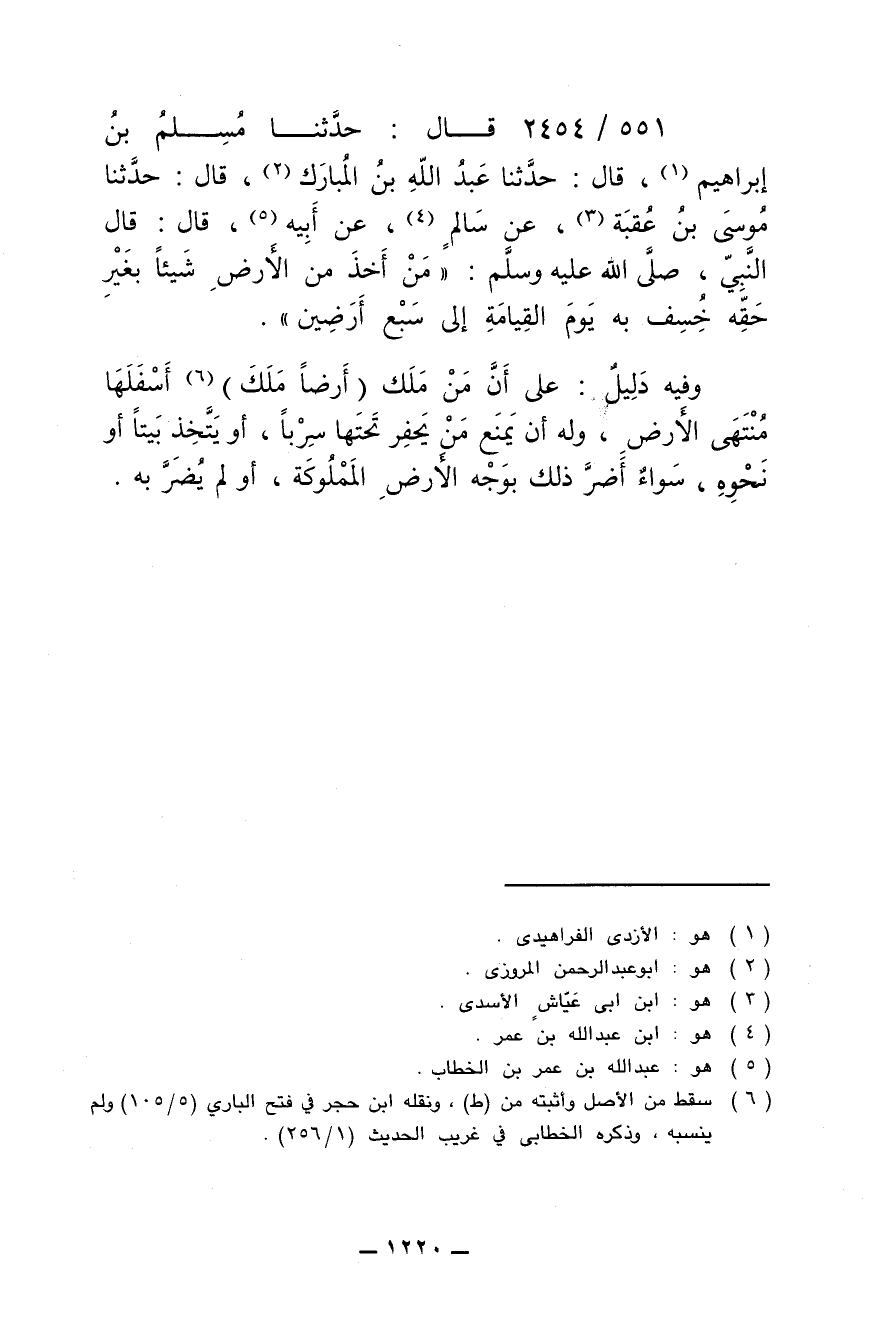 ٥٥١ / ٢٤٥٤ قـــال : حدَّثنـــا مُسِـــلمُ بنُ
إبراهيم (١) ، قال : حدَّثنا عَبدُ اللّهِ بنُ المُبارَك (٢) ، قال : حدَّثنا
مُوسَى بنُ عُقبَة (٣) ، عن سَالمٍ (٤) ، عن أَبِيه (٥) ، قال : قال
النَّبِيّ ، صلَّى الله عليه وسلَّم : « مَنْ أَخذَ من الأَرضِ شَيئاً بغَيْرِ
حَقِّه خُسِف به يَومَ القِيامَةِ إلى سَبْع أَرَضِين » .
وفيه دَلِيلٌ : على أَنَّ مَنْ مَلَك ( أَرضاً مَلَكَ ) (٦) أَسْفَلَهَا
مُنْتَهَى الأَرضِ ، وله أن يَمنَع مَنْ يَحفِر تَحتَها سِرْباً ، أو يَتَّخِذ بَيتاً أو
نَحْوِهِ ، سَواءٌ أَضرَّ ذلك بوَجْه الأَرضِ المَمْلُوكَة ، أو لم يُضرَّ به .
( ١ ) هو : الأزدى الفراهيدى .
( ٢ ) هو : ابوعبدالرحمن المروزى .
( ٣ ) هو : ابن ابى عَيّاشٍ الأسدى .
( ٤ ) هو : ابن عبدالله بن عمر .
( ٥ ) هو : عبدالله بن عمر بن الخطاب .
( ٦ ) سقط من الأصل وأثبته من (ط) ، ونقله ابن حجر في فتح الباري (١٠٥/٥) ولم
ينسبه ، وذكره الخطابى في غريب الحديث (٢٥٦/١) .
ـ ١٢٢٠ ـ